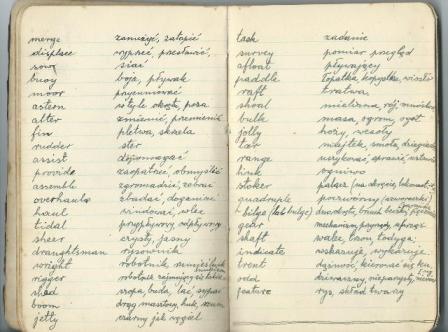 merge zanurzyć, zatopić
displace wyprzeć, przestawić,
ziać
buoy boja, pływak
moor przycumować
astern w tyle okrętu, poza
alter zmienić, przemienić
fin płetwa, skrzela
rudder ster
assist dopomagać
provide zaopatrzeć, obmyślić
assemble zgromadzić, zebrać
overhaul zbadać, doganiać
haul windować, wlec
tidal przypływowy, odpływowy
sheer czysty, jasny
draughtsman rysownik
wright robotnik, rzemieślnik
rigger robotnik zajmujący się
shed szopa, buda, lać,
boom drąg masztowy, huk,
jetty czarny jak węgiel
task zadanie
survey pomiar, przegląd
afloat pływający
paddle łopatka, kopystka, wiosło
raft tratwa
shoal mielizna, rój, mnóstwo
bulk masa, ogrom, ogół
jolly hoży, wesoły
tar majtek, smoła, dziegieć
range uszykować, sprawić, ustawić
ogniwo
stoker palacz (na okręcie,
quadruple poczwórny
bilge (też bulge)
gear mechanizm, przyrządy,
shaft walec, trzon, łodyga
indicate wskazuje, wykazuje
trend dążność, kierować się
odd dziwaczny, nieparzysty,
feature rys, skład twarzy